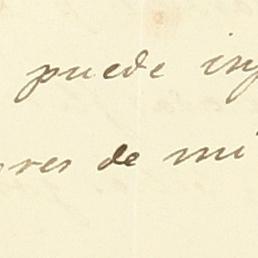 puede inf
ores de mi